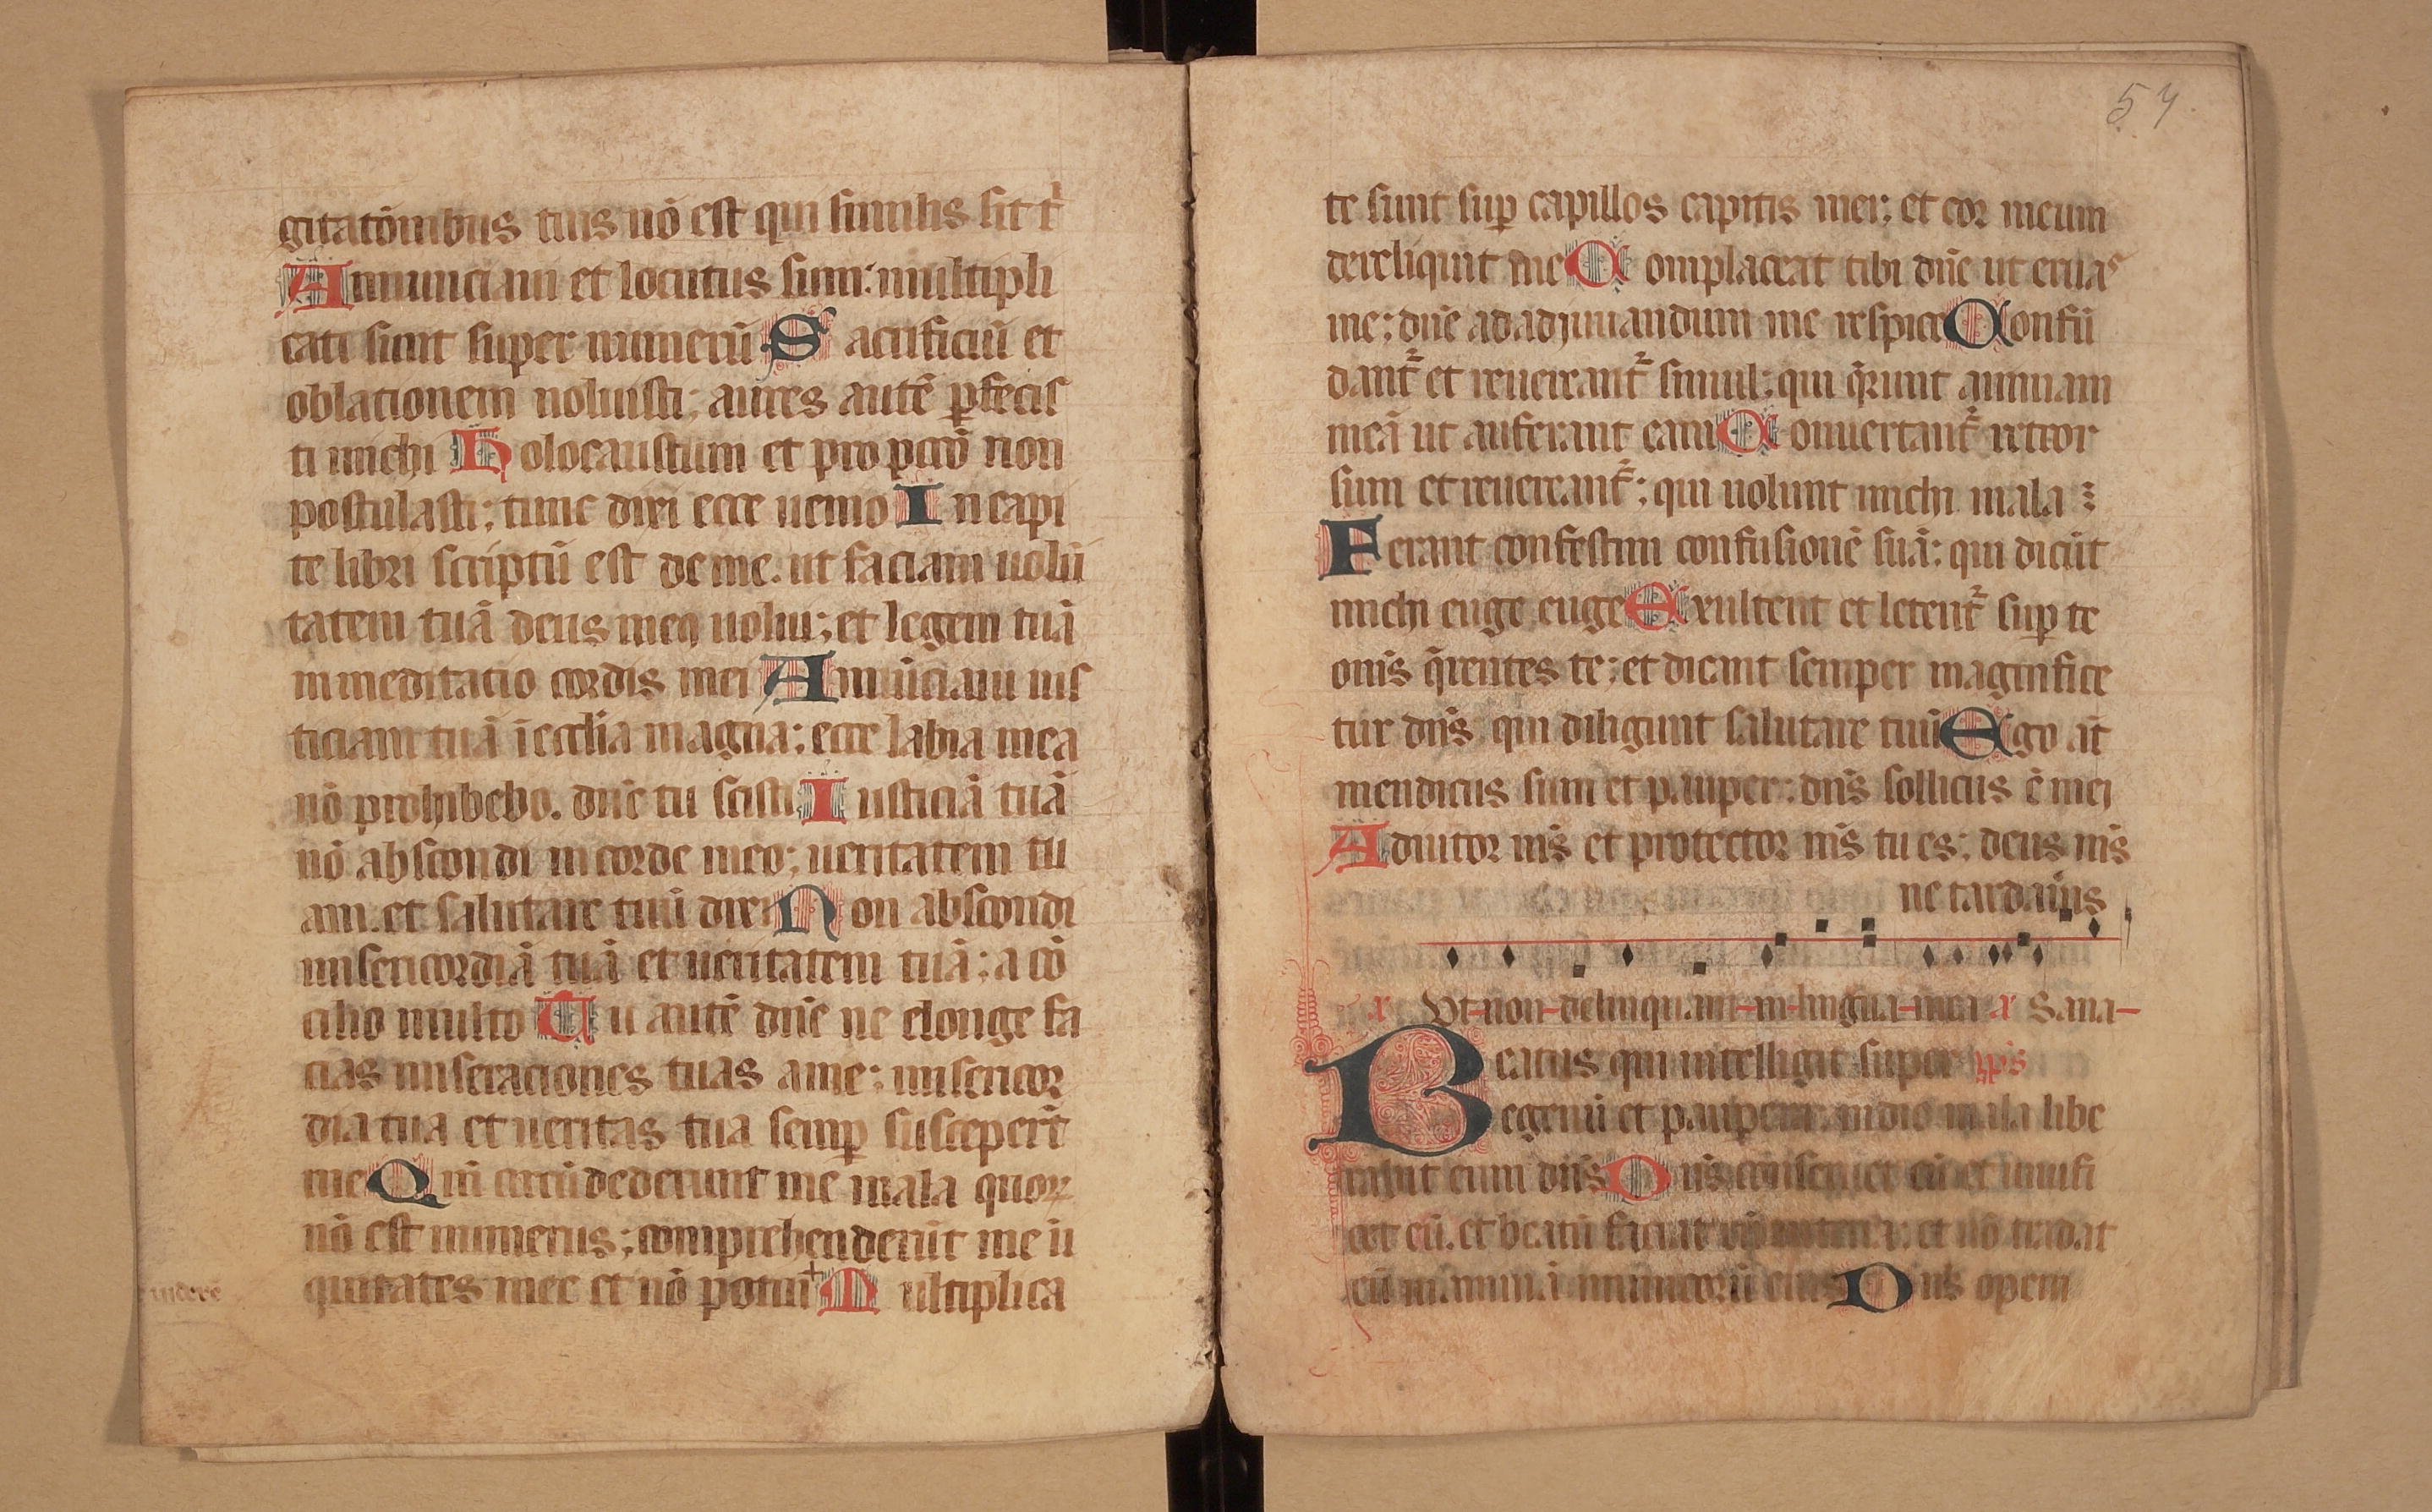 gitatōnibus tuis nō est qui similis sit t̄
Annunciaui et locutus sum: multipli
cati sunt super numerū Sacrificiū et
oblationem noluisti; aures autē ꝑfecis
ti michi Holocaustum et pro pccō non
postulasti; tunc dixi ecce uenio In capi
te libri scriptū est de me. ut faciam uolū
tatem tuā deus meꝯ uolui; et legem tuā
in meditatio cordis mei Annūciaui ius
ticiam tuā ī ecclīa magna; ecce labia mea
nō prohibebo. dn̄e tu scisti Iusticiā tuā
nō abscondi in corde meo; ueritatem tu
am. et salutare tuū dixi Non abscondi
misericordiā tuā et ueritatem tuā; a cō
cilio multo Tu autē dn̄e ne elonge fa
cias miseraciones tuas a me; misericor
dia tua et ueritas tua semꝑ susceperūt
me Qm̄ circūdederunt me mala quoꝝ
nō est numerus; comprehenderūt me ī
quitates mee et nō potui + Multiplica
uiderē
54
te sunt suꝑ capillos capitis mei; et cor meum
dereliquit me Complaceat tibi dn̄e ut eruas
me; dn̄e ad adjuuandum me respice Confū
dant᷑ et reuereant᷑ simul; qui q̄runt animam
meā ut auferant eam Conuertant᷑ retror
sum et reuereant᷑; qui uolunt michi mala
Ferant confestim confusionē suā; qui dicūt
michi euge euge Exultent et letent᷑ suꝑ te
om̄s q̄rentes te; et dicant semper magnifice
tur dn̄s qui diligunt salutare tuū Ego āt
mendicus sum et pauper; dn̄s sollicitus ē mei
Adiutor m̄s et protector m̄s tu es; deus m̄s
ne tardaūis
Vt non delinquam in lingua mea Sana
Beatus qui intelligit super ꝑs
egenū et pauperem in die mala libe
rabit eum dn̄s Dn̄s conseruet eū et uiuifi
cet eū. et beatū faciat eū in terra; et nō tradat
eū in animā inimicorū eius Dn̄s opem